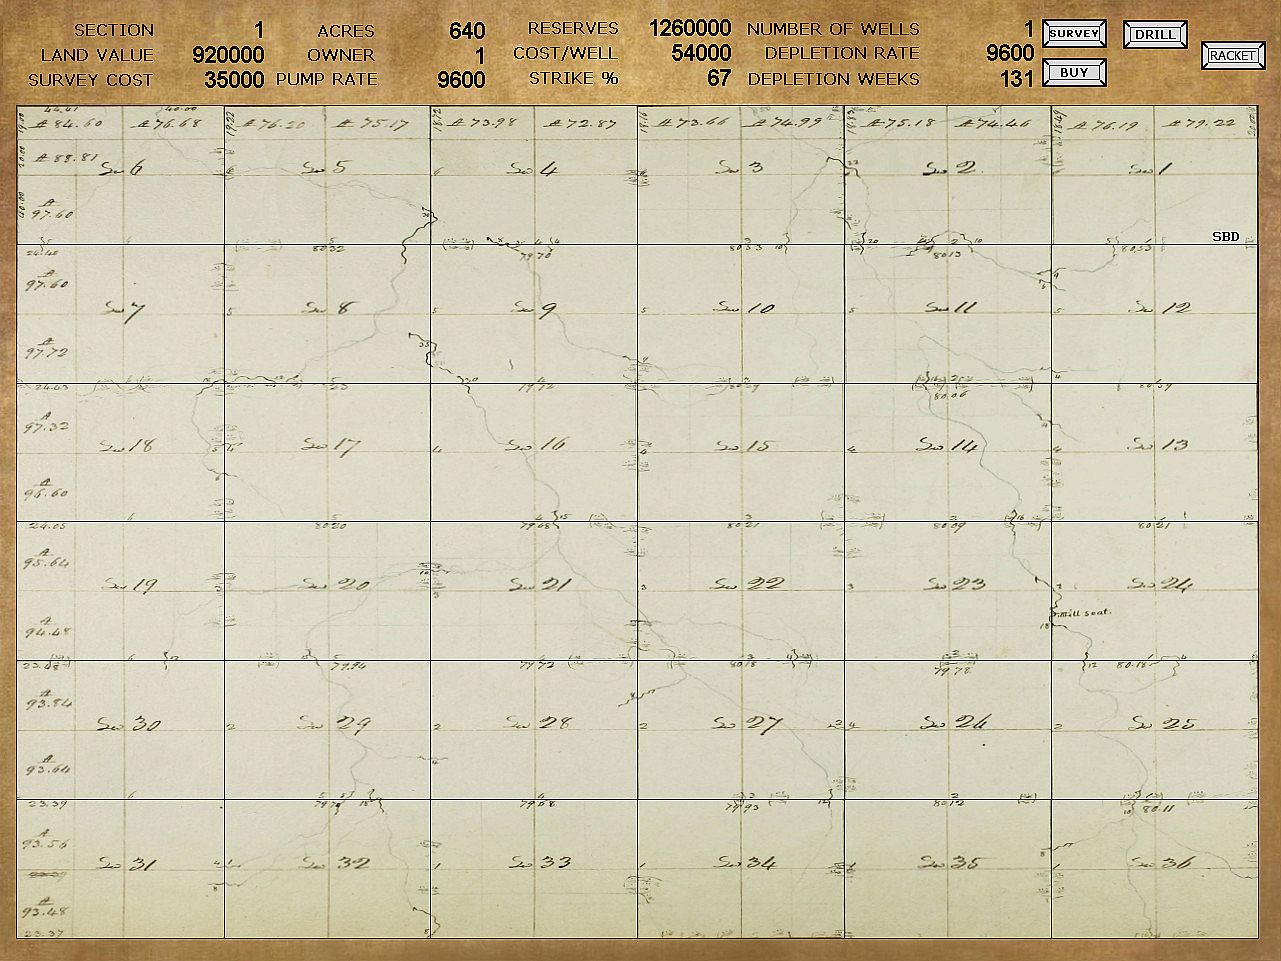 SECTION 1 ACRES 640 RESERVES 1260000 NUMBER OF WELLS 1 SURVEY DRILL
LAND VALUE 920000 OWNER 1 COST/WELL 54000 DEPLETION RATE 9600 RACKET
SURVEY COST 35000 PUMP RATE 9600 STRIKE % 67 DEPLETION WEEKS 131 BUY
A 84.60 A 76.68 A 76.20 A 75.17 A 73.98 A 72.87 A 73.66 A 74.99 A 75.18 A 74.46 A 76.19 A 79.22
A 88.81
Sec 6 Sec 5 Sec 4 Sec 3 Sec 2 Sec 1
A
97.60
SBD
80.32 79.70 80.13
A
97.60
Sec 7 Sec 8 Sec 9 Sec 10 Sec 11 Sec 12
A
97.72
24.43 80.06
A
97.32
Sec 18 Sec 17 Sec 16 Sec 15 Sec 14 Sec 13
A
96.60
24.05 80.20 79.68 80.21 80.09 80.21
A
95.64
Sec 19 Sec 20 Sec 21 Sec 22 Sec 23 Sec 24
mill seat.
A
94.48
79.94 79.72 80.18 79.78 80.18
A
93.84
Sec 30 Sec 29 Sec 28 Sec 27 Sec 26 Sec 25
A
93.64
23.39 79.68 79.93 80.12 80.11
A
93.56
Sec 31 Sec 32 Sec 33 Sec 34 Sec 35 Sec 36
A
93.48
23.37